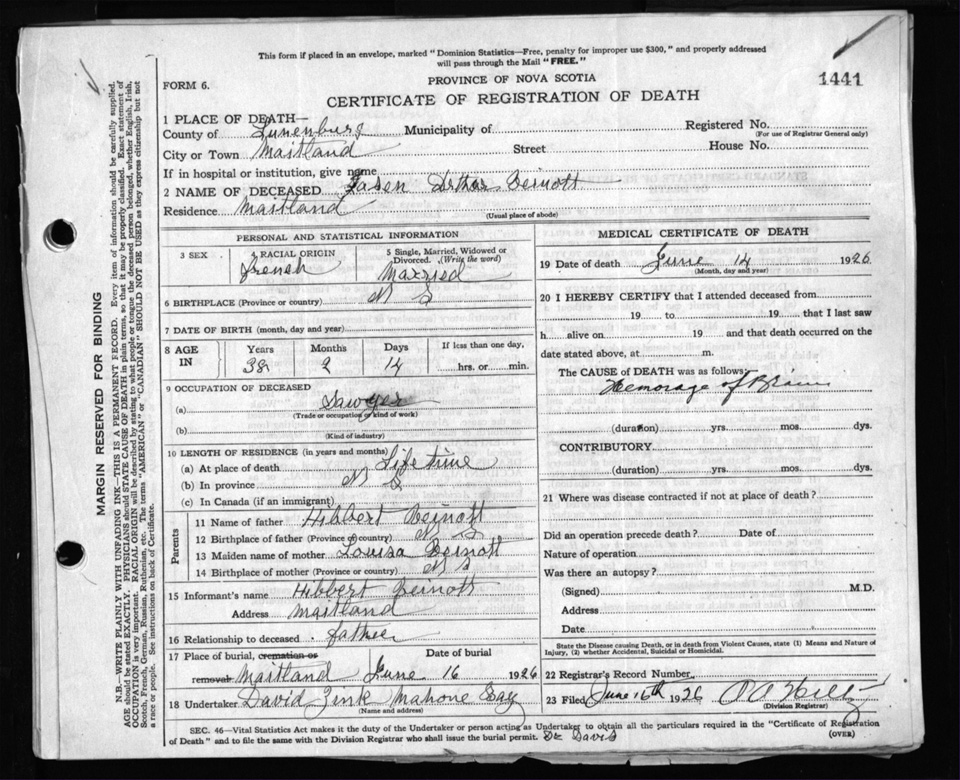 This form if placed in an envelope, marked "Dominion Statistics—Free, penalty for improper use $300," and properly addressed
will pass through the Mail "FREE."
FORM 6.
PROVINCE OF NOVA SCOTIA
1441
CERTIFICATE OF REGISTRATION OF DEATH
1 PLACE OF DEATH—
County of Lunenburg Municipality of Registered No.
(For use of Registrar General only)
City or Town Maitland Street House No.
If in hospital or institution, give name
2 NAME OF DECEASED Arthur
Residence Maitland
(Usual place of abode)
PERSONAL AND STATISTICAL INFORMATION
3 SEX
4 RACIAL ORIGIN
French
5 Single, Married, Widowed or
Divorced. (Write the word)
Married
6 BIRTHPLACE (Province or country) N S
7 DATE OF BIRTH (month, day and year)
8 AGE
IN
Years Months Days If less than one day,
38 2 14 hrs. or min.
9 OCCUPATION OF DECEASED
(a) Sawyer
(Trade or occupation or kind of work)
(b)
(Kind of industry)
10 LENGTH OF RESIDENCE (in years and months)
(a) At place of death Life time
(b) In province N S
(c) In Canada (if an immigrant)
Parents
11 Name of father Hibbert Beinott
12 Birthplace of father (Province or country) N S
13 Maiden name of mother Louisa Beinott
14 Birthplace of mother (Province or country) N S
15 Informant's name Hibbert Beinott
Address Maitland
16 Relationship to deceased father
17 Place of burial, cremation or
removal Maitland
Date of burial
June 16 1926
18 Undertaker David Zink Mahone Bay
(Name and address)
MEDICAL CERTIFICATE OF DEATH
19 Date of death June 14 1926
(Month, day and year)
20 I HEREBY CERTIFY that I attended deceased from
19 to 19 that I last saw
h alive on 19 and that death occurred on the
date stated above, at m.
The CAUSE of DEATH was as follows:
Hemorage of Brain
(duration) yrs. mos. dys.
CONTRIBUTORY.
(duration) yrs. mos. dys.
21 Where was disease contracted if not at place of death?
Did an operation precede death? Date of
Nature of operation
Was there an autopsy?
(Signed) M.D.
Address
Date
State the Disease causing Death, or in death from Violent Causes, state (1) Means and Nature of
Injury, (2) whether Accidental, Suicidal or Homicidal.
22 Registrar's Record Number
23 Filed June 16th 1926
(Division Registrar)
SEC. 46—Vital Statistics Act makes it the duty of the Undertaker or person acting as Undertaker to obtain all the particulars required in the "Certificate of Registration
of Death" and to file the same with the Division Registrar who shall issue the burial permit. Dr Davis
(OVER)
MARGIN RESERVED FOR BINDING
N.B.—WRITE PLAINLY WITH UNFADING INK—THIS IS A PERMANENT RECORD. Every item of information should be carefully supplied.
AGE should be stated EXACTLY. PHYSICIANS should STATE CAUSE OF DEATH in plain terms, so that it may be properly classified. Exact statement of
OCCUPATION is very important. RACIAL ORIGIN will be described by stating to what people or tongue the deceased person belonged, whether English, Irish,
Scotch, French, German, Russian, Ruthenian, etc. The terms "AMERICAN" or "CANADIAN" SHOULD NOT BE USED as they express citizenship but not
a race or people. See instructions on back of Certificate.